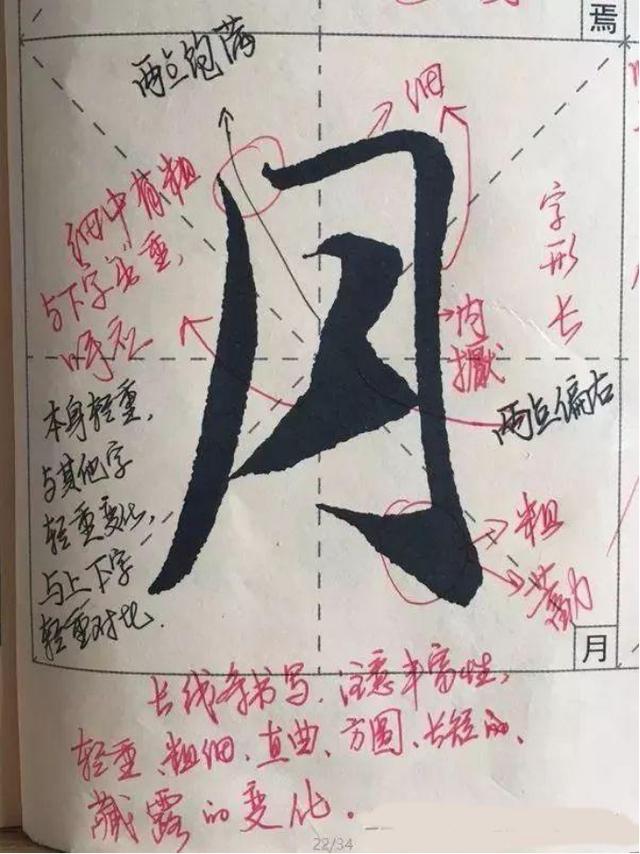 焉
两点饱满
细
细中有粗
与下字
呼应
字形长
内擫
本身轻重，
与其他字
轻重变化，
与上下字
轻重对比.
两点偏右
粗
月
月
长线条书写，注意丰富性，
轻重、粗细、直曲、方圆、长短的、
藏露的变化.
22/34